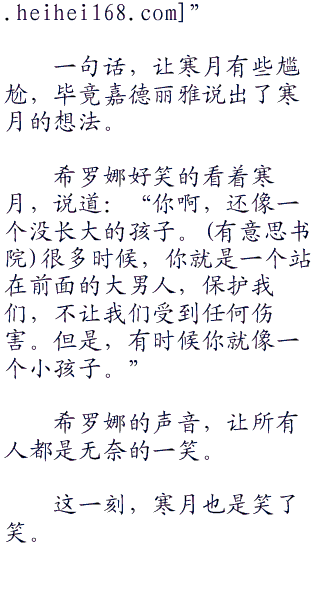 .heihei168.com]”
一句话，让寒月有些尴
尬，毕竟嘉德丽雅说出了寒
月的想法。
希罗娜好笑的看着寒
月，说道：“你啊，还像一
个没长大的孩子。(有意思书
院)很多时候，你就是一个站
在前面的大男人，保护我
们，不让我们受到任何伤
害。但是，有时候你就像一
个小孩子。”
希罗娜的声音，让所有
人都是无奈的一笑。
这一刻，寒月也是笑了
笑。